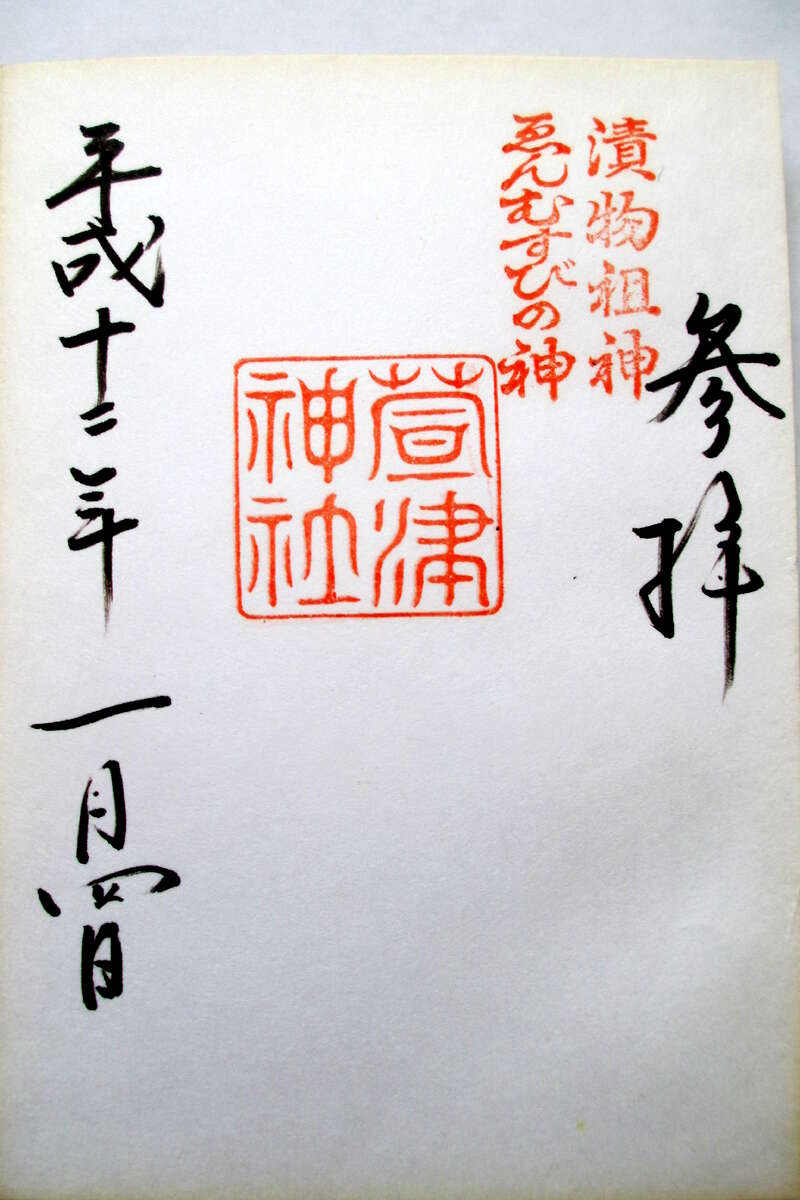 参拝
漬物祖神
ゑんむすびの神
萱津
神社
平成十二年一月四日